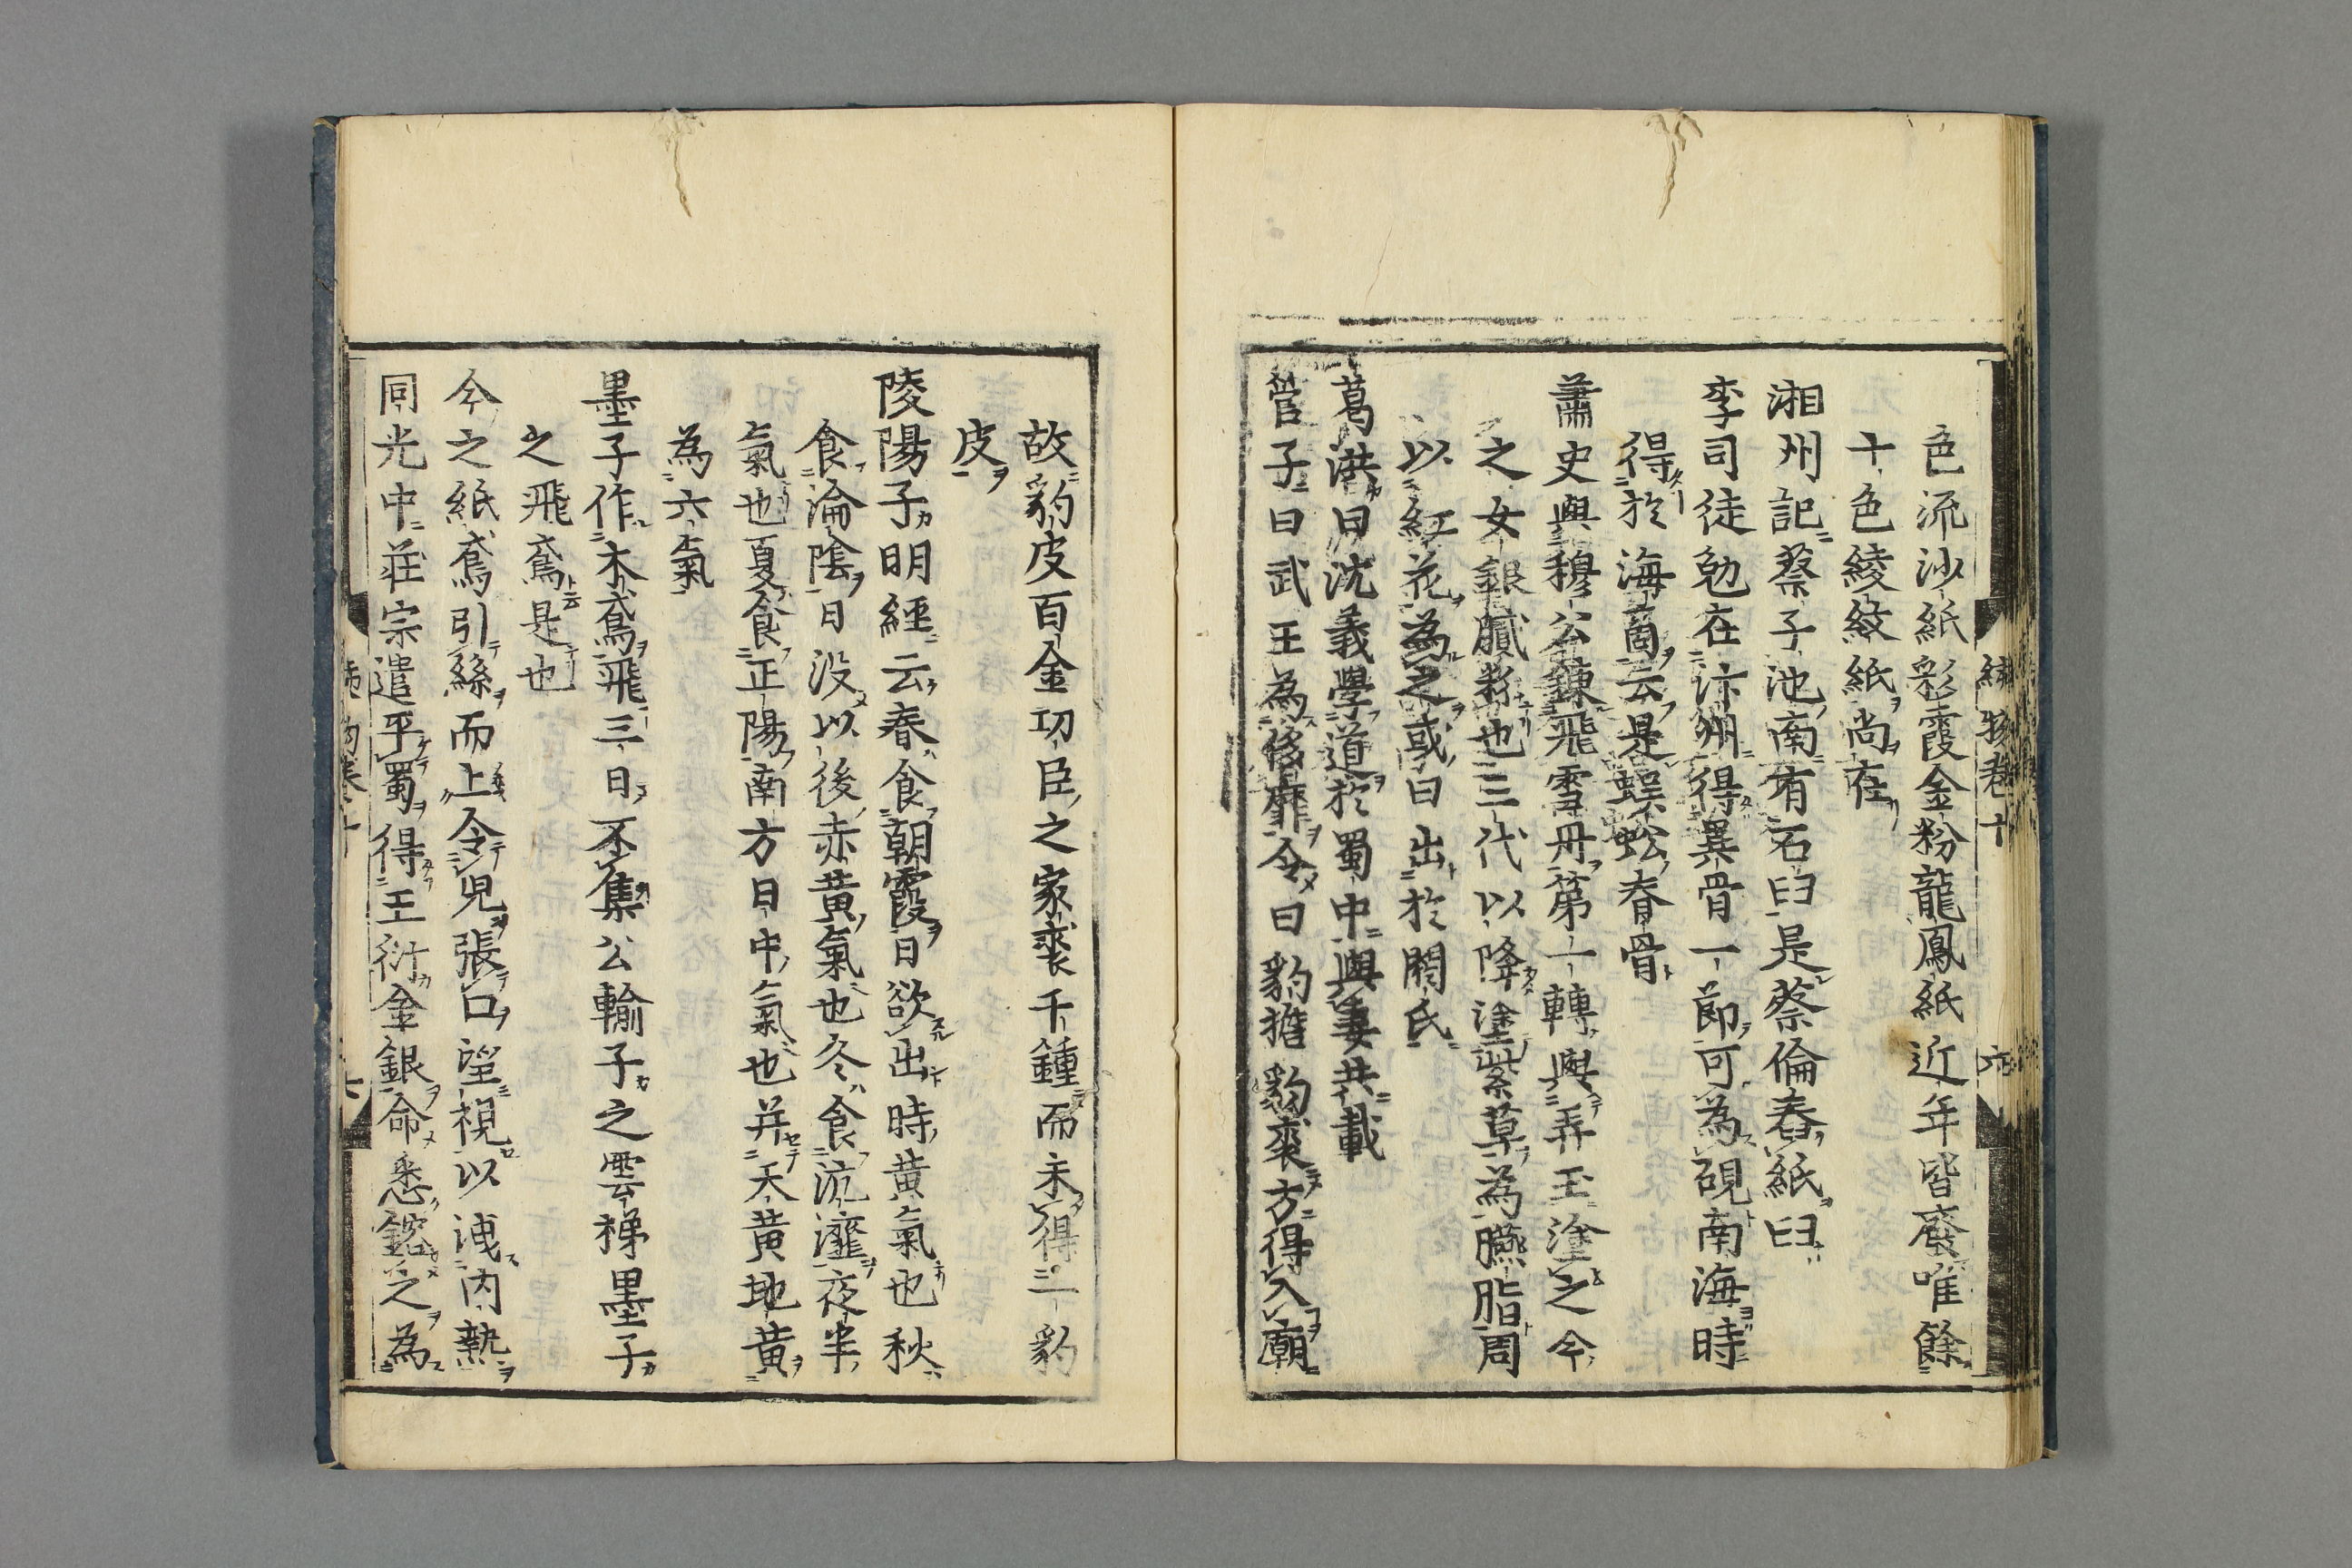 色流沙紙彩霞金粉龍鳳紙近年皆廢唯餘
十色綾紋紙尚在
湘州記蔡子池南有石臼是蔡倫舂紙臼
李司徒勉在汴州得異骨一節可為硯南海時
得於海商云是蜈蚣脊骨
蕭史與穆公鍊飛雪丹第一轉與弄玉塗之今
之女銀膩粉也三代以降塗紫草為臙脂周
以紅花為之或曰出於閼氏
葛洪曰沈羲學道於蜀中與妻共載
管子曰武王為侈靡令曰豹襜豹裘方得入廟
續物巻十
六
故豹皮百金功臣之家裘千鍾而未得一豹
皮
陵陽子明經云春食朝霞日欲出時黄氣也秋
食淪陰日没以後赤黄氣也冬食沆瀣夜半
氣也夏食正陽南方日中氣也并天黄地黄
為六氣
墨子作木鳶飛三日不集公輸子之雲梯墨子
之飛鳶是也
今之紙鳶引絲而上令兒張口望視以洩内熱
同光中莊宗遣平蜀得王衍金銀命悉鎔之為